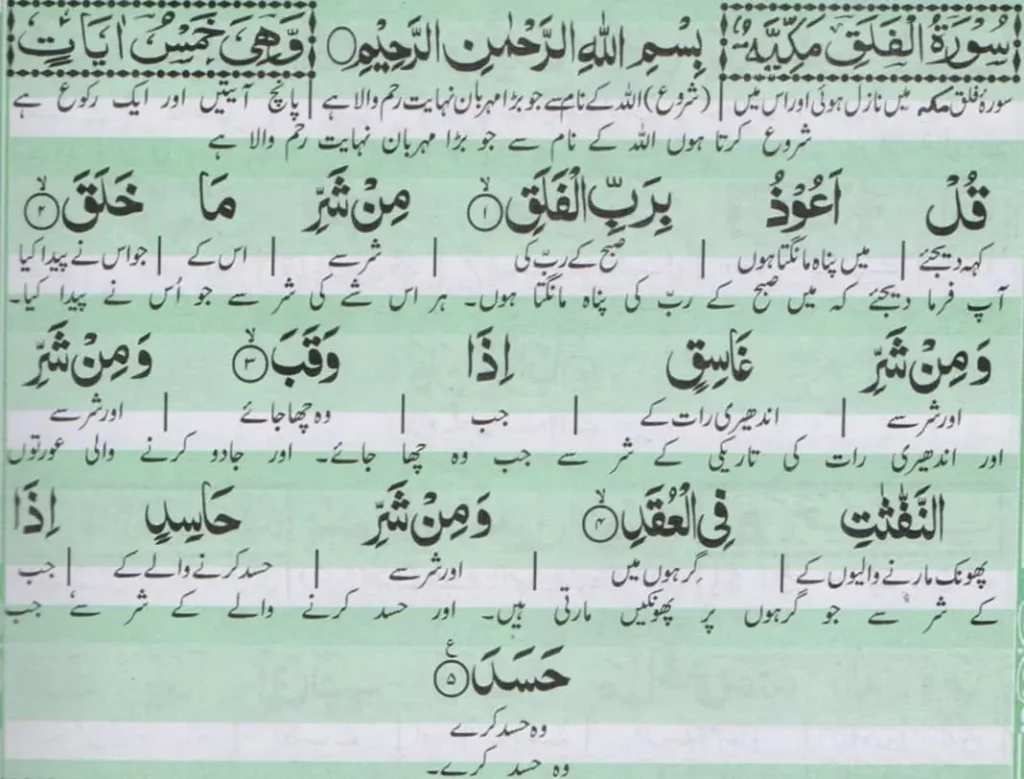 سُوْرَةُ الْفَلَقِ مَكِّيَّةٌ بِسْمِ اللهِ الرَّحْمٰنِ الرَّحِيْمِ وَّهِيَ خَمْسُ اٰيَاتٍ
سورۂ فلق مکہ میں نازل ہوئی اور اس میں | (شروع) اللہ کے نام سے جو بڑا مہربان نہایت رحم والا ہے | پانچ آیتیں اور ایک رکوع ہے
شروع کرتا ہوں اللہ کے نام سے جو بڑا مہربان نہایت رحم والا ہے
قُلْ اَعُوْذُ بِرَبِّ الْفَلَقِ ۙ۱ مِنْ شَرِّ مَا خَلَقَ ۙ۲
کہہ دیجئے | میں پناہ مانگتا ہوں | صبح کے ربّ کی | شر سے | اس کے | جو اس نے پیدا کیا
آپ فرما دیجئے کہ میں صبح کے ربّ کی پناہ مانگتا ہوں۔ ہر اس شے کی شر سے جو اُس نے پیدا کیا۔
وَمِنْ شَرِّ غَاسِقٍ اِذَا وَقَبَ ۙ۳ وَمِنْ شَرِّ
اور شر سے | اندھیری رات کے | جب | وہ چھا جائے | اور شر سے
اور اندھیری رات کی تاریکی کے شر سے جب وہ چھا جائے۔ اور جادو کرنے والی عورتوں
النَّفّٰثٰتِ فِي الْعُقَدِ ۙ۴ وَمِنْ شَرِّ حَاسِدٍ اِذَا
پھونک مارنے والیوں کے | گرہوں میں | اور شر سے | حسد کرنے والے کے | جب
کے شر سے جو گرہوں پر پھونکیں مارتی ہیں۔ اور حسد کرنے والے کے شر سے جب
حَسَدَ ۵ ع
وہ حسد کرے
وہ حسد کرے۔